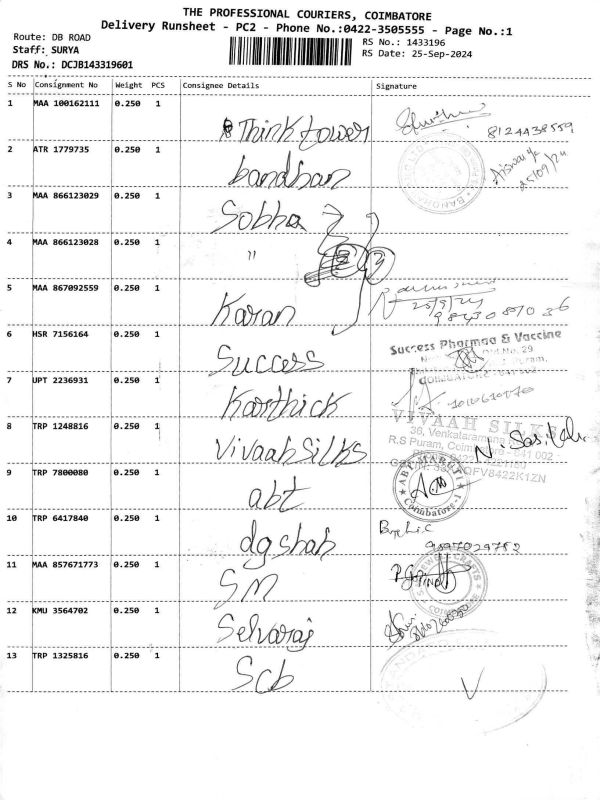 THE PROFESSIONAL COURIERS, COIMBATORE
Delivery Runsheet - PC2 - Phone No.:0422-3505555 - Page No.:1
Route: DB ROAD
RS No.: 1433196
Staff: SURYA
RS Date: 25-Sep-2024
DRS No.: DCJB143319601
S No Consignment No Weight PCS Consignee Details Signature
1 MAA 100162111 0.250 1 Think tower
8124438559
2 ATR 1779735 0.250 1 bandhan
25/09/24
3 MAA 866123029 0.250 1 Sobha
4 MAA 866123028 0.250 1 "
5 MAA 867092559 0.250 1 Karan
25/9/24
6 HSR 7156164 0.250 1 Success
Success Pharmaa & Vaccine
7 UPT 2236931 0.250 1 Karthick
8 TRP 1248816 0.250 1 Vivaah Silks
VIVAAH SILKS
36, Venkataramana
R.S Puram, Coimbatore - 641 002
9 TRP 7800080 0.250 1 abt
ABT MARUTI
Coimbatore-1
10 TRP 6417840 0.250 1 dg shah
11 MAA 857671773 0.250 1 SM
12 KMU 3564702 0.250 1 Selvaraj
13 TRP 1325816 0.250 1 Scb